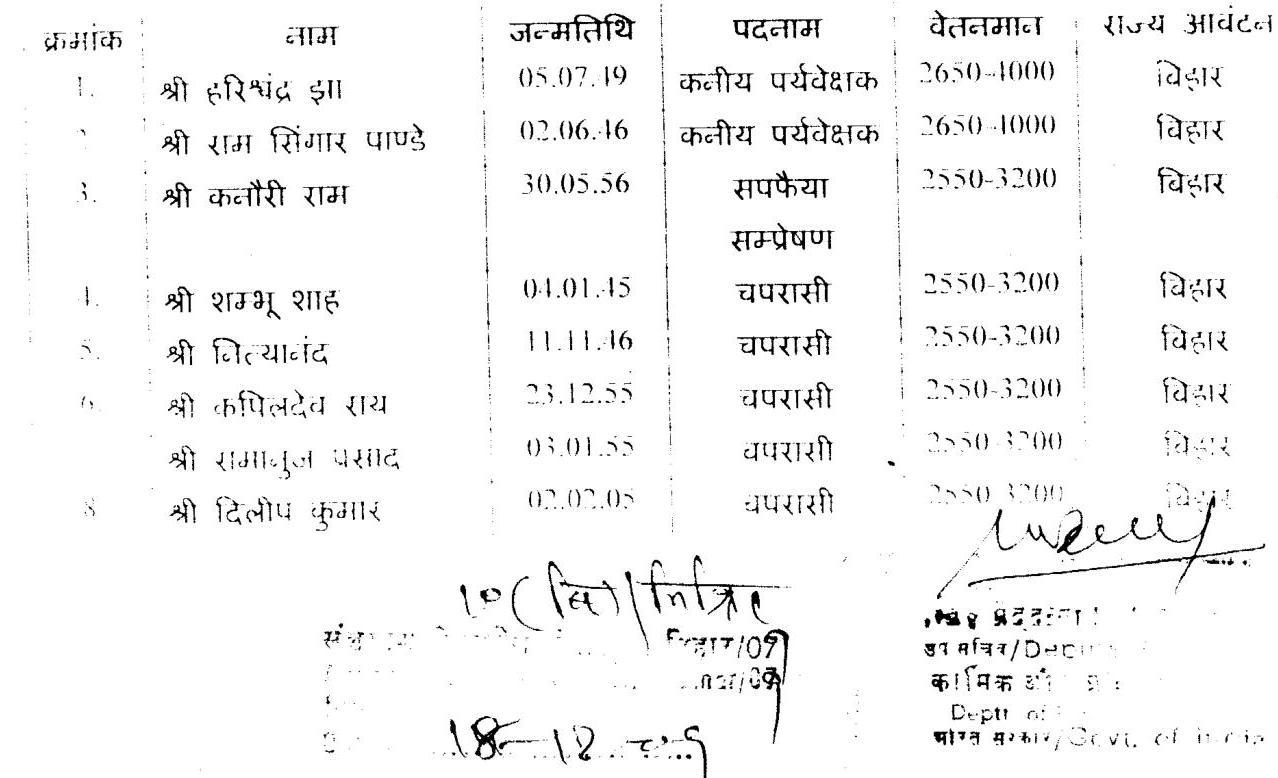 क्रमांक नाम जन्मतिथि पदनाम वेतनमान राज्य आवंटन
1. श्री हरिश्चंद्र झा 05.07.49 कनीय पर्यवेक्षक 2650-4000 बिहार
श्री राम सिंगार पाण्डे 02.06.46 कनीय पर्यवेक्षक 2650-4000 बिहार
3. श्री कनौरी राम 30.05.56 सपफैया 2550-3200 बिहार
सम्प्रेषण
4. श्री शम्भू शाह 04.01.45 चपरासी 2550-3200 बिहार
5. श्री नित्यानंद 11.11.46 चपरासी 2550-3200 बिहार
6. श्री कपिलदेव राय 23.12.55 चपरासी 2550-3200 बिहार
श्री रामानुज प्रसाद 03.01.55 चपरासी 2550-3200 बिहार
8 श्री दिलीप कुमार 02.02.05 चपरासी 2550 3200 बिहार
बिहार/09
उप सचिव/
कार्मिक
Deptt. of
भारत सरकार/Govt. of India